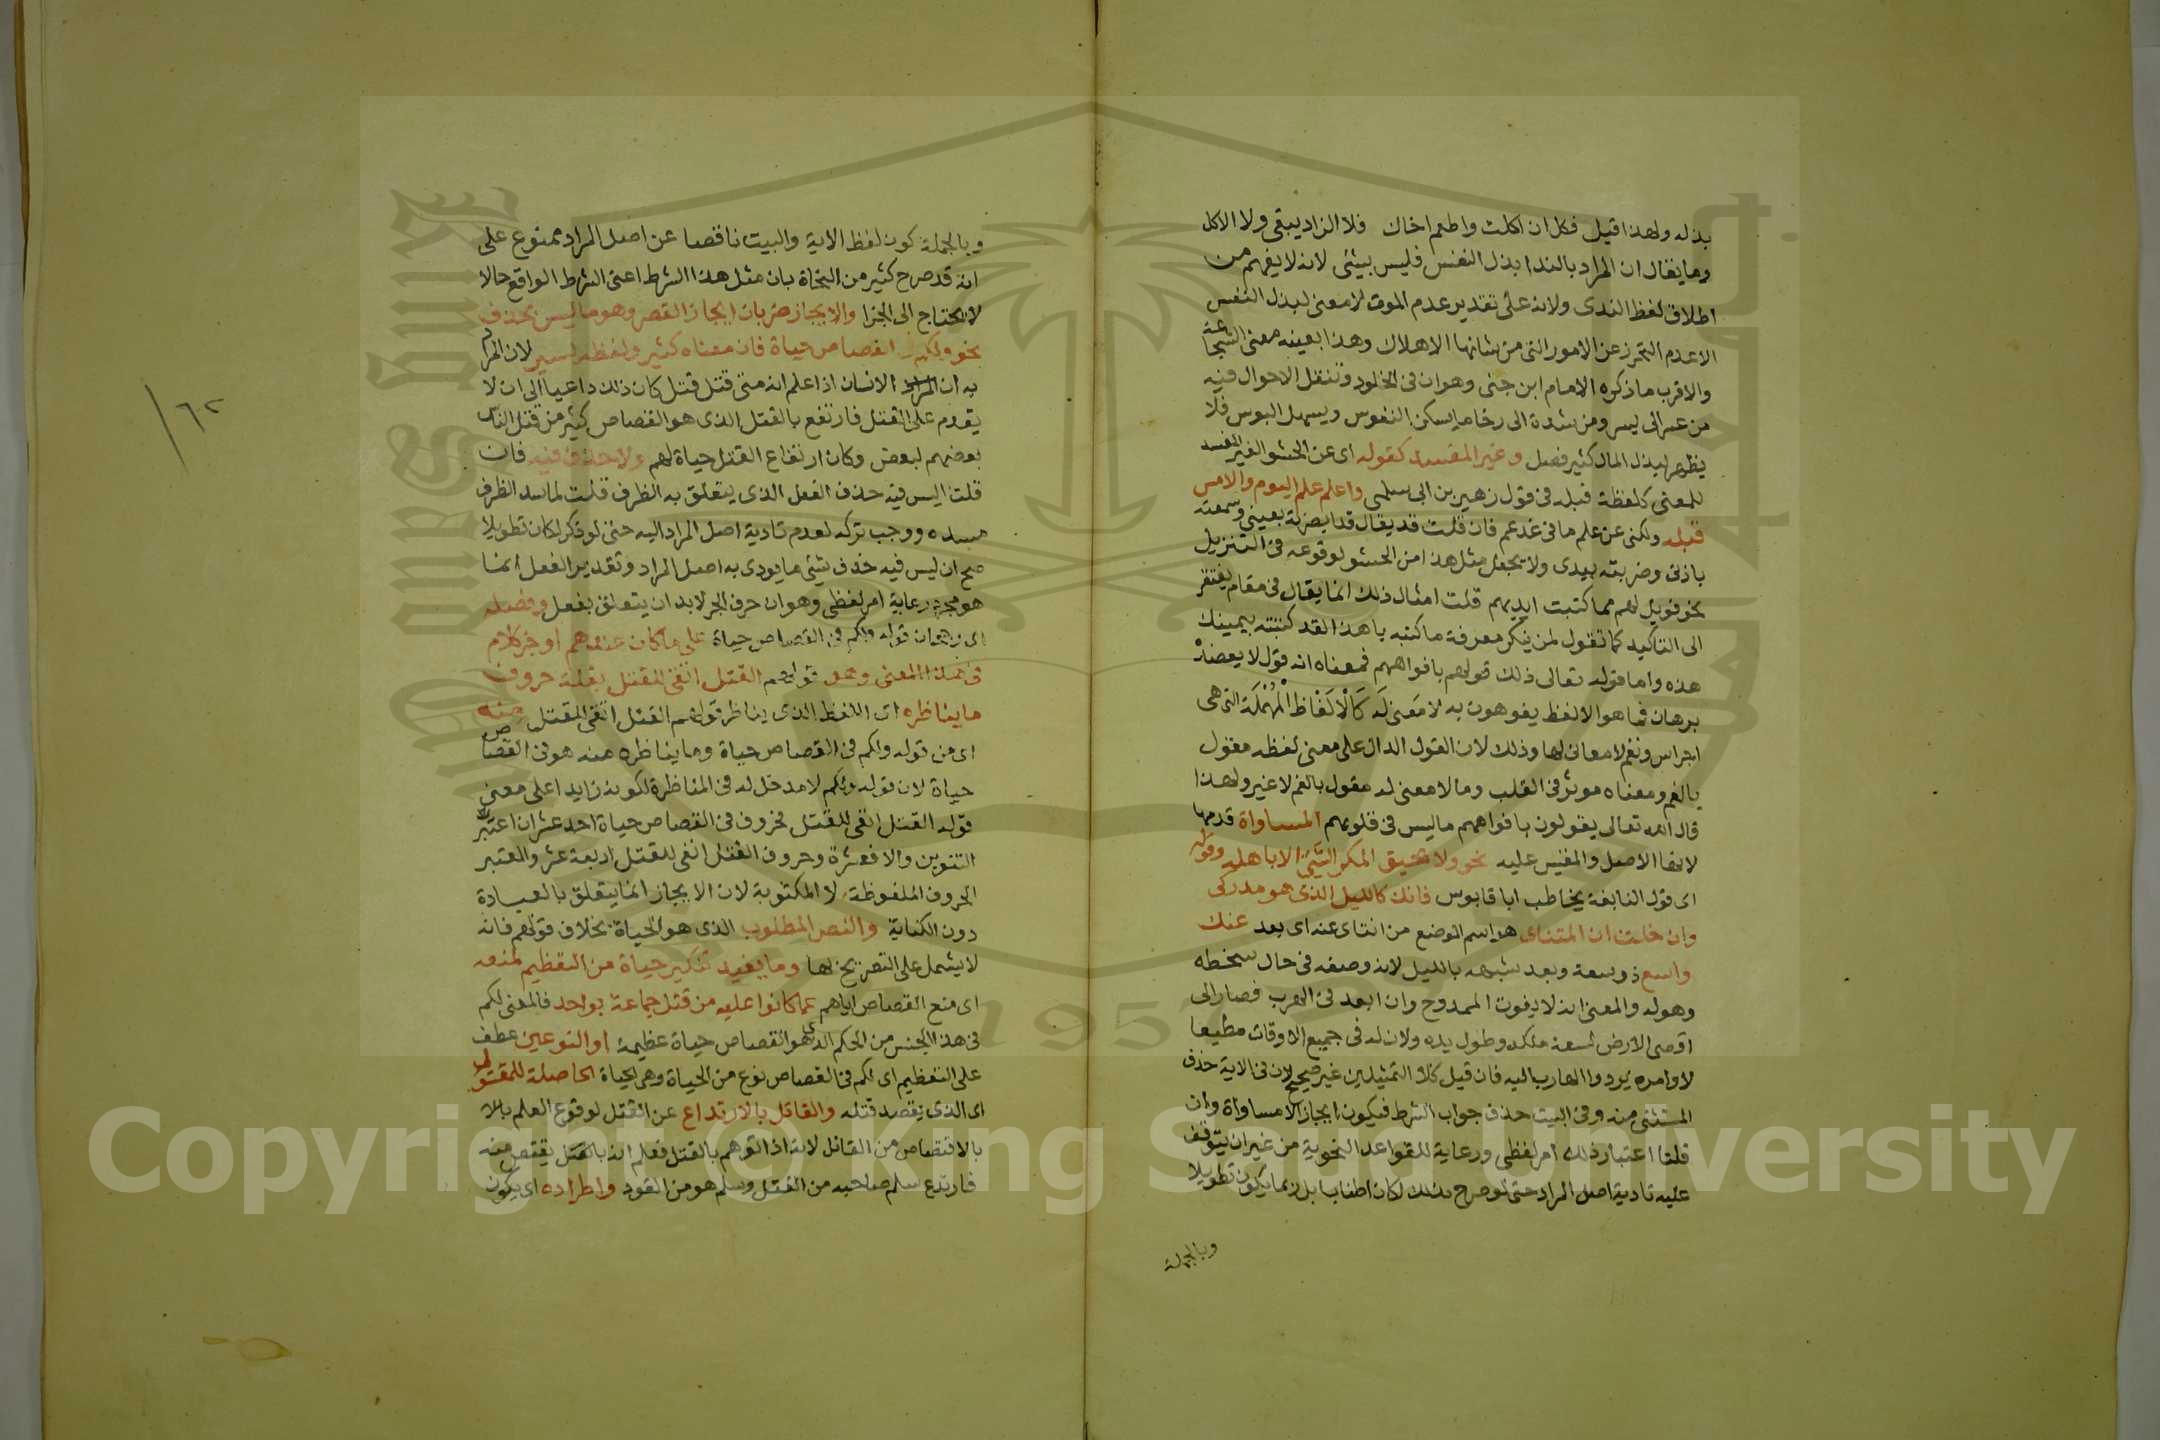 بذله ولهذا قيل فكل ان اكلت واطعم اخاك فلا الزاد يبقى ولا الاكل
وما يقال ان المراد بالندا بذل النفس فليس بشئ لانه لا يفهم من
اطلاق لفظ الندى ولانه على تقدير عدم الموت لا معنى لبذل النفس
الا عدم التحرز عن الامور التى من شانها الاهلاك وهذا بعينه معنى الشجاعة
والاقرب ما ذكره الامام ابن جنى وهو ان فى الخلود وتنقل الاحوال فيه
من عسر الى يسر ومن شدة الى رخا ما يسكن النفوس ويسهل البوس فلا
يظهر لبذل المال كثير فضل وغير المفسد كقوله اى عن الحشو الغير المفسد
للمعنى كلفظة قبله فى قول زهير بن ابى سلمى واعلم علم اليوم والامس
قبله ولكنى عن علم ما فى غد عم فان قلت قد يقال قد ابصرته بعينى وسمعته
باذنى وضربته بيدى ولا يجعل مثل هذا من الحشو لوقوعه فى التنزيل
نحو فويل لهم مما كتبت ايديهم قلت امثال ذلك انما يقال فى مقام يفتقر
الى التاكيد كما تقول لمن ينكر معرفة ما كتبه يا هذا لقد كتبته بيمينك
هذه واما قوله تعالى ذلك قولهم بافواههم فمعناه انه قول لا يعضده
برهان فما هو الا لفظ يفوهون به لا معنى له كَالْاَلفَاظ الْمُهْمَلَة التى هى
اجراس ونغم لا معانى لها وذلك لان القول الدال على معنى لفظه مقول
بالفم ومعناه موثر فى القلب وما لا معنى له مقول بالفم لا غير ولهذا
قال الله تعالى يقولون بافواههم ما ليس فى قلوبهم المساواة قدمها
لانها الاصل والمقيس عليه نحو ولا يحيق المكر السَّيّئ الا باهله وقوله
اى قول النابغة يخاطب ابا قابوس فانك كالليل الذى هو مدركى
وان خلت ان المنتاى هو اسم الموضع من انتاى عنه اى بعد عنك
واسع ذو سعة وبعد شبهه بالليل لانه وصفه فى حال سخطه
وهوله والمعنى انه لا يفوت الممدوح وان ابعد فى الهرب فصار الى
اقصى الارض لسعة ملكه وطول يده ولان له فى جميع الاوقات مطيعا
لاوامره يردوا الهارب اليه فان قيل كلا التمثيلين غير صحيح لان فى الاية حذف
المستثنى منه وفى البيت حذف جواب الشرط فيكون ايجاز الا مساواة وان
قلنا اعتبار ذلك امر لفظى ورعاية للقواعد النحوية من غير ان يتوقف
عليه تادية اصل المراد حتى لو صرح بذلك لكان اطنابا بل ربما يكون تطويلا
وبالجملة
وبالجملة كون لفظ الاية والبيت ناقصا عن اصل المراد ممنوع على
انه قد صرح كثير من النحاة بان مثل هذا الشرط اعنى الشرط الواقع حالا
لا يحتاج الى الجزا والايجاز ضربان ايجاز القصر وهو ما ليس بحذف
نحو ولكم فى القصاص حياة فان معناه كثير ولفظه يسير لان المراد
به ان الانسان اذا علم انه متى قتل قتل كان ذلك داعيا الى ان لا
يقدم على القتل فارتفع بالقتل الذى هو القصاص كثير من قتل الناس
بعضهم لبعض وكان ارتفاع القتل حياة لهم ولا حذف فيه فان
قلت اليس فيه حذف الفعل الذى يتعلق به الظرف قلت لما سد الظرف
مسده ووجب تركه لعدم تادية اصل المراد اليه حتى لو ذكر لكان تطويلا
صح ان ليس فيه حذف شئ ما يودى به اصل المراد وتقدير الفعل انما
هو مجرد رعاية امر لفظى وهو ان حرف الجر لا بد ان يتعلق بفعل وفضله
اى رجحان قوله ولكم فى القصاص حياة على ما كان عندهم اوجز كلام
فى هذا المعنى وهو قولهم القتل انفى للقتل بقلة حروف
ما يناظره اى اللفظ الذى يناظر قولهم القتل انفى للقتل منه
اى من قوله ولكم فى القصاص حياة وما يناظره منه هو فى القصاص
حياة لان قوله ولكم لا مدخل له فى المناظرة لكونه زايدا على معنى
قوله القتل انفى للقتل فحروف فى القصاص حياة احد عشر ان اعتبر
التنوين والا فعشرة وحروف القتل انفى للقتل اربعة عشر والمعتبر
الحروف الملفوظة لا المكتوبة لان الايجاز انما يتعلق بالعبارة
دون الكتابة والنص المطلوب الذى هو الحياة بخلاف قولهم فانه
لا يشمل على التصريح بها وما يفيد تنكير حياة من التعظيم لمنعه
اى منع القصاص اياهم عما كانوا عليه من قتل جماعة بواحد فالمعنى لكم
فى هذا الجنس من الحكم الذى هو القصاص حياة عظيمة او النوعين عطف
على التعظيم اى لكم فى القصاص نوع من الحياة وهى الحياة الحاصلة للمقتول
اى الذى يقصد قتله والقاتل بالارتداع عن القتل لوقوع العلم بالا
بالاقتصاص من القاتل لانه اذا هم بالقتل فعلم انه بالقتل يقتص منه
فارتدع سلم صاحبه من القتل وسلم هو من القود واطراده اى بكون